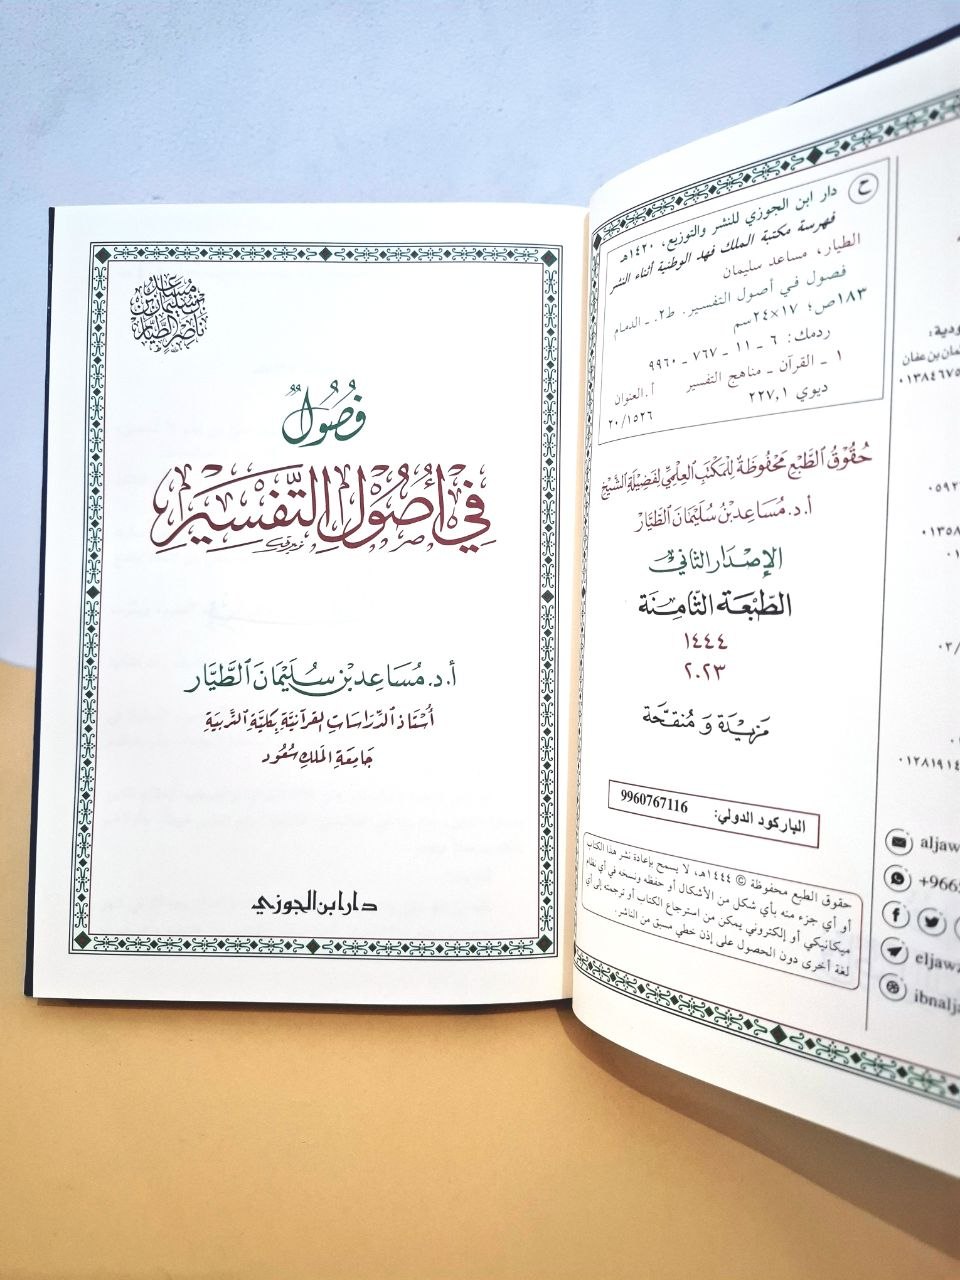 مساعد
بن سليمان بن
ناصر الطيار
فُصُولٌ
فِي أُصُولِ التَّفْسِيرِ
أ. د. مُسَاعِد بْن سُلَيْمَان الطَّيَّار
أُسْتَاذ الدِّرَاسَاتِ القُرآنِيَّةِ بِكُلِّيَّةِ التَّربِيَةِ
جَامِعَةِ المَلِكِ سُعُود
دار ابن الجوزي
ح
دار ابن الجوزي للنشر والتوزيع، ١٤٢٠هـ
فهرسة مكتبة الملك فهد الوطنية أثناء النشر
الطيار، مساعد سليمان
فصول في أصول التفسير. ط٢. ـ الدمام
١٨٣ص؛ ١٧×٢٤سم
ردمك: ٦ ـ ١١ ـ ٧٦٧ ـ ٩٩٦٠
١ ـ القرآن ـ مناهج التفسير أ. العنوان
ديوي ٢٢٧,١ ٢٠/١٥٢٦
حُقُوقُ الطَّبْعِ مَحْفُوظَةٌ لِلمَكْتَبِ العِلْمِيِّ لِفَضِيلَةِ الشَّيْخِ
أ.د. مُسَاعِد بْن سُلَيْمَان الطَّيَّار
الإِصْدَار الثَّانِي
الطَّبْعَة الثَّامِنَة
١٤٤٤
٢٠٢٣
مَزِيدَة وَ مُنَقَّحَة
الباركود الدولي: 9960767116
حقوق الطبع محفوظة © ١٤٤٤هـ، لا يسمح بإعادة نشر هذا الكتاب
أو أي جزء منه بأي شكل من الأشكال أو حفظه ونسخه في أي نظام
ميكانيكي أو إلكتروني يمكن من استرجاع الكتاب أو ترجمته إلى أي
لغة أخرى دون الحصول على إذن خطي مسبق من الناشر.
ودية:
مان بن عفان
٠١٣٨٤٦٧٥
٠٥٩٢
٠١٣٥٨
٠١
٠٣/
٠١
٠١٢٨١٩١٤
aljaw
+966
eljawz
ibnalja